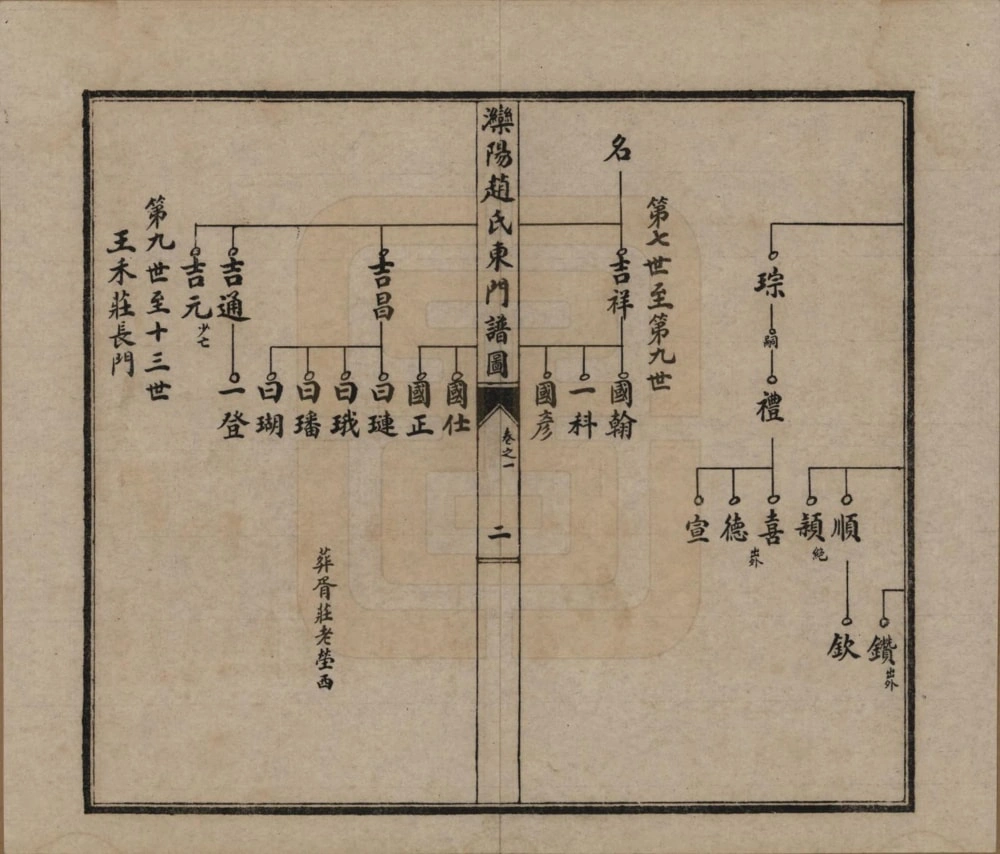 琮
嗣
禮
順
穎 絶
喜
德 出外
宣
鑽 出外
欽
第七世至第九世
名
吉祥
國翰
一科
國彥
灤陽趙氏東門譜圖
卷之一
二
國仕
國正
吉昌
曰璉
曰珴
曰璠
曰瑚
吉通
一登
吉元 少亡
葬胥莊老塋西
第九世至十三世
王禾莊長門